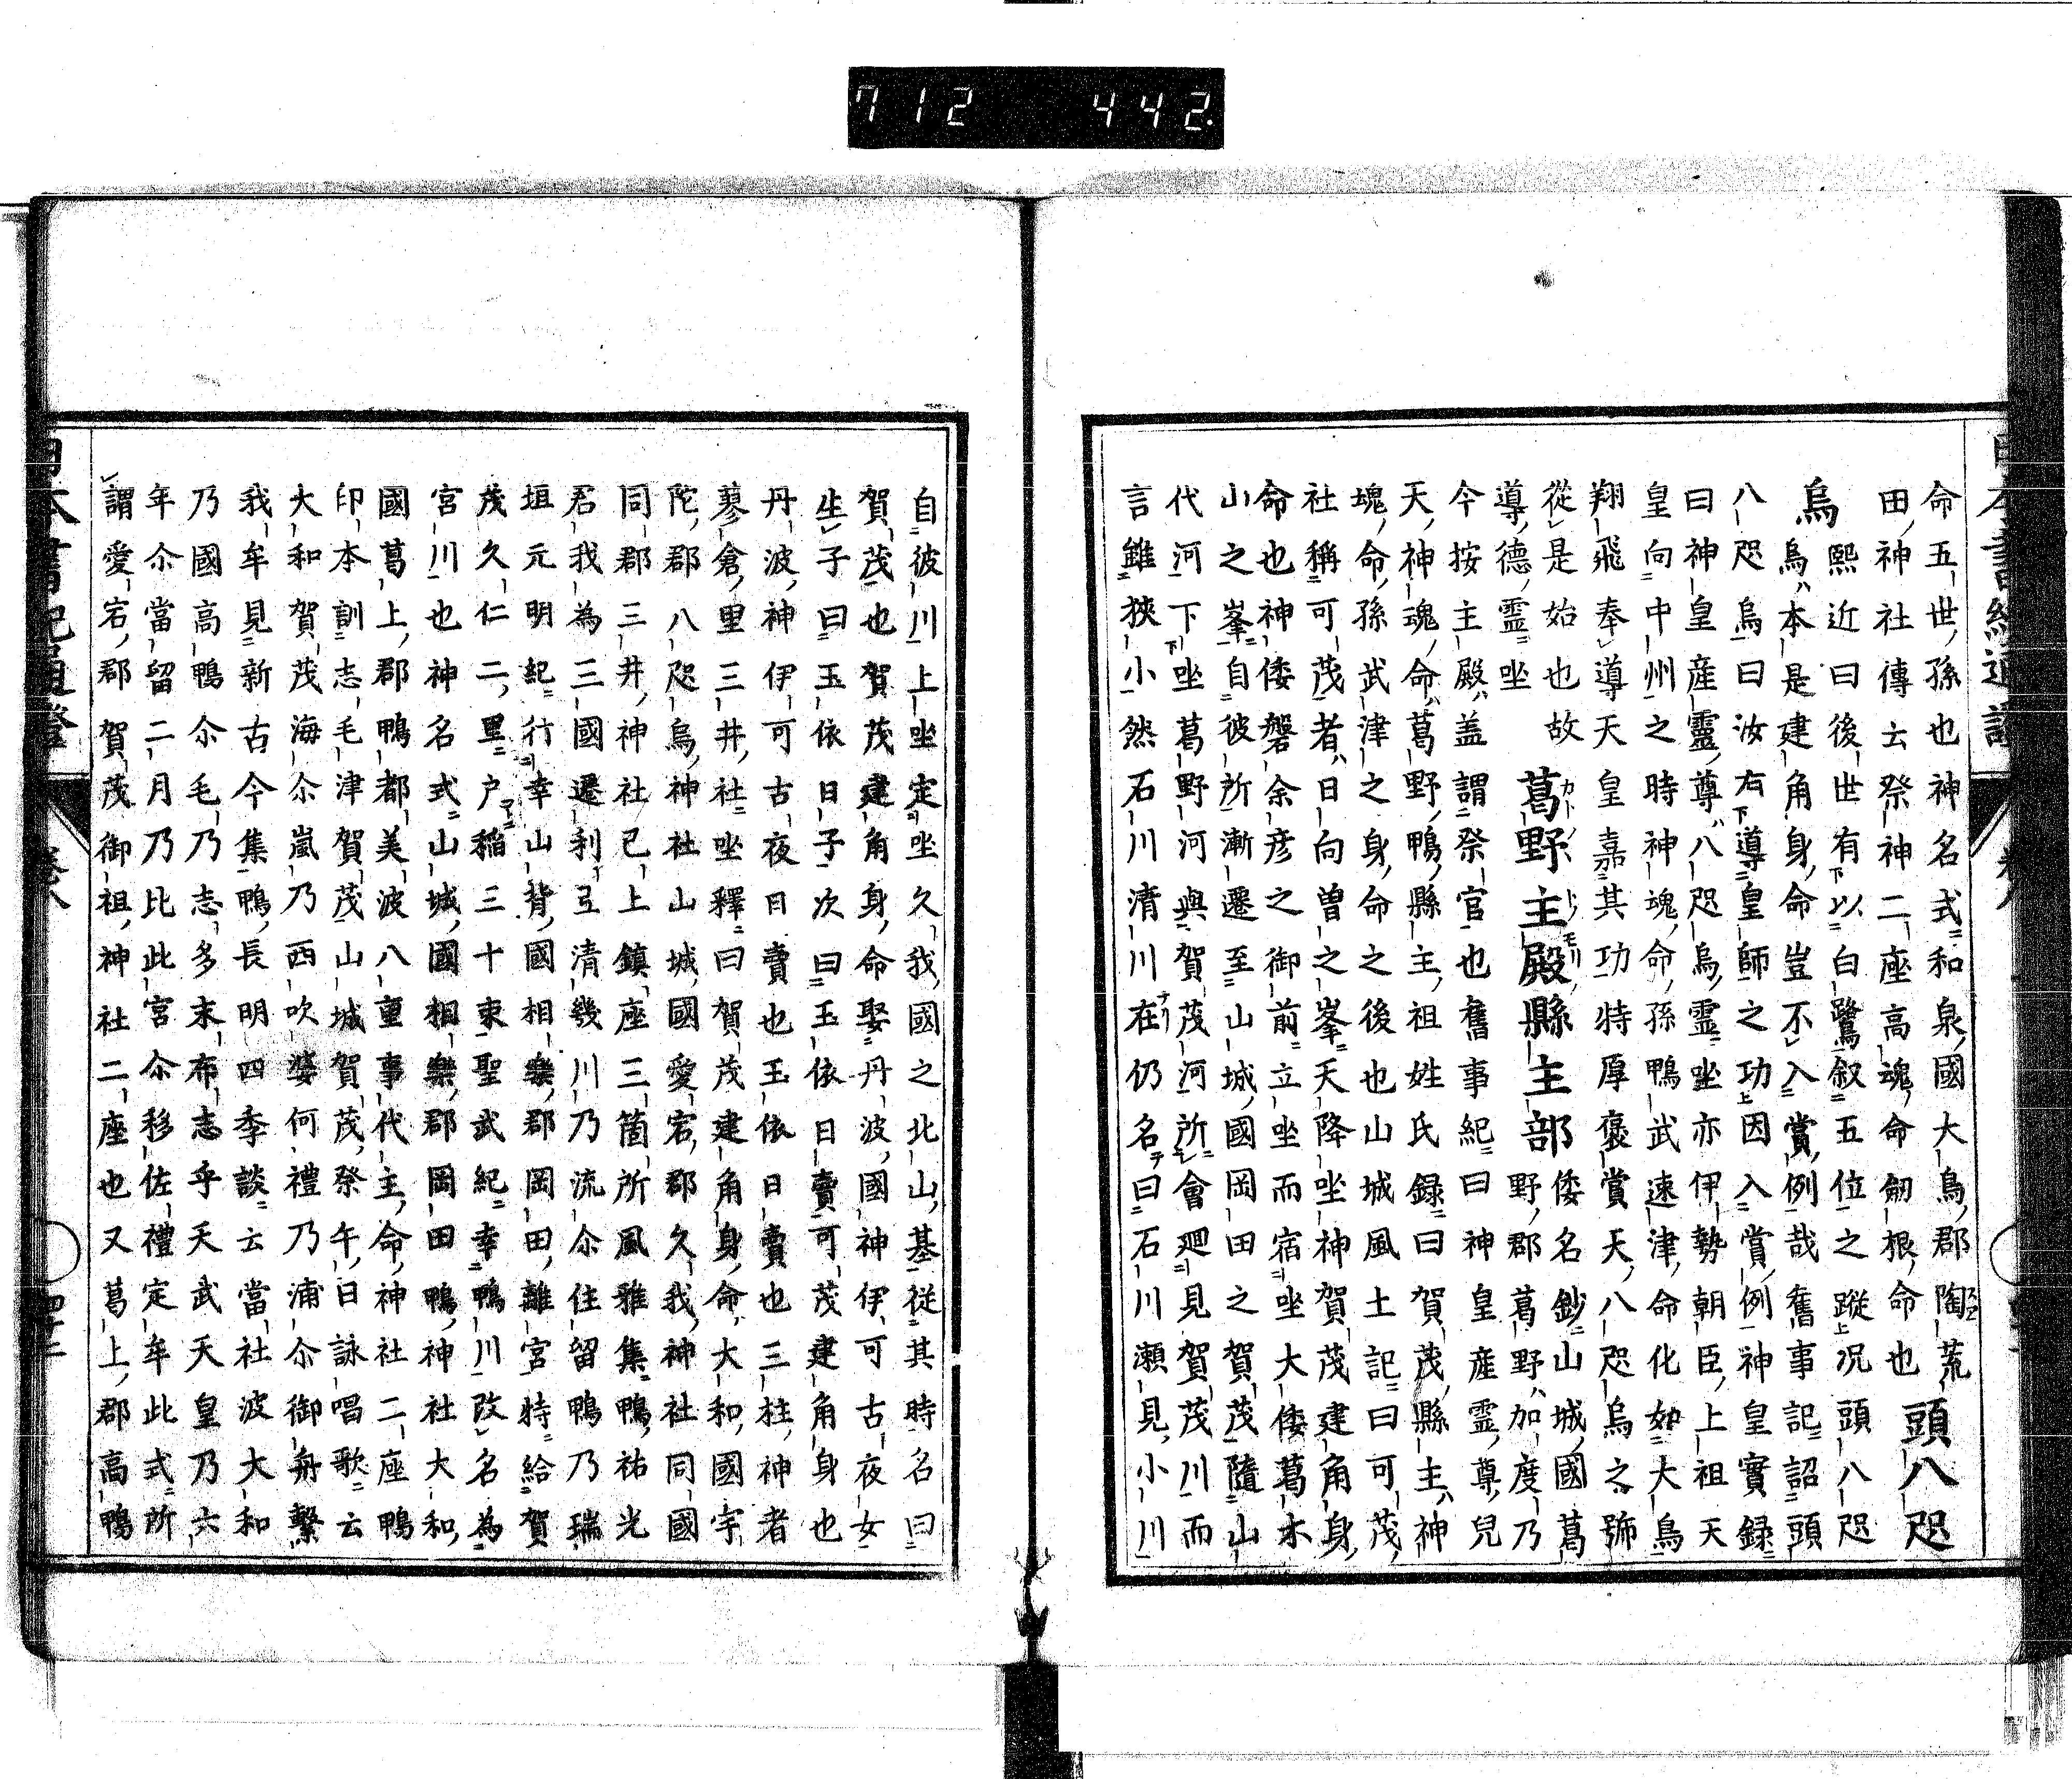 712 442
命五世孫也神名式和泉國大鳥郡陶荒
田神社傳云祭神二座高魂命劒根命也頭八咫
烏 熙近曰後世有以白鷺叙五位之蹤况頭八咫
烏本是建角身命豈不入賞例哉舊事記詔頭
八咫烏曰汝有導皇師之功因入賞例神皇實録
曰神皇産靈尊八咫烏靈坐亦伊勢朝臣上祖天
皇向中州之時神魂命孫鴨武速津命化如大烏
翔飛奉導天皇嘉其功特厚褒賞天八咫烏之號
從是始也故葛野主殿縣主部倭名鈔山城國葛
野郡葛野加度乃
導德靈坐
今按主殿盖謂祭官也舊事紀曰神皇産靈尊兒
天神魂命葛野鴨縣主祖姓氏録曰賀茂縣主神
魂命孫武津之身命之後也山城風土記曰可茂
社稱可茂者日向曽之峯天降坐神賀茂建角身
命也神倭磐余彦之御前立坐而宿坐大倭葛木
山之峯自彼所漸遷至山城國岡田之賀茂隨山
代河下坐葛野河與賀茂河所會廻見賀茂川而
言雖狹小然石川清川在仍名曰石川瀬見小川
自彼川上坐定坐久我國之北山基從其時名曰
賀茂也賀茂建角身命娶丹波國神伊可古夜女
生子曰玉依日子次曰玉依日賣可茂建角身也
丹波神伊可古夜日賣也玉依日賣也三柱神者
蓼倉里三井社坐釋曰賀茂建角身命大和國宇
陀郡八咫烏神社山城國愛宕郡久我神社同國
同郡三井神社已上鎮座三箇所風雅集鴨祐光
君我為三國遷利氐清幾川乃流尒住留鴨乃瑞
垣元明紀行幸山背國相樂郡岡田離宮特給賀
茂久仁二里戸稲三十束聖武紀幸鴨川改名為
宮川也神名式山城國相樂郡岡田鴨神社大和
國葛上郡鴨都美波八重事代主命神社二座鴨
印本訓志毛津賀茂山城賀茂祭午日詠唱歌云
大和賀茂海尒嵐乃西吹婆何禮乃浦尒御舟繫
我牟見新古今集鴨長明四季談云當社波大和
乃國高鴨尒毛乃志多末布志乎天武天皇乃六
年尒當留二月乃比此宮尒移佐禮定牟此式所
謂愛宕郡賀茂御祖神社二座也又葛上郡高鴨